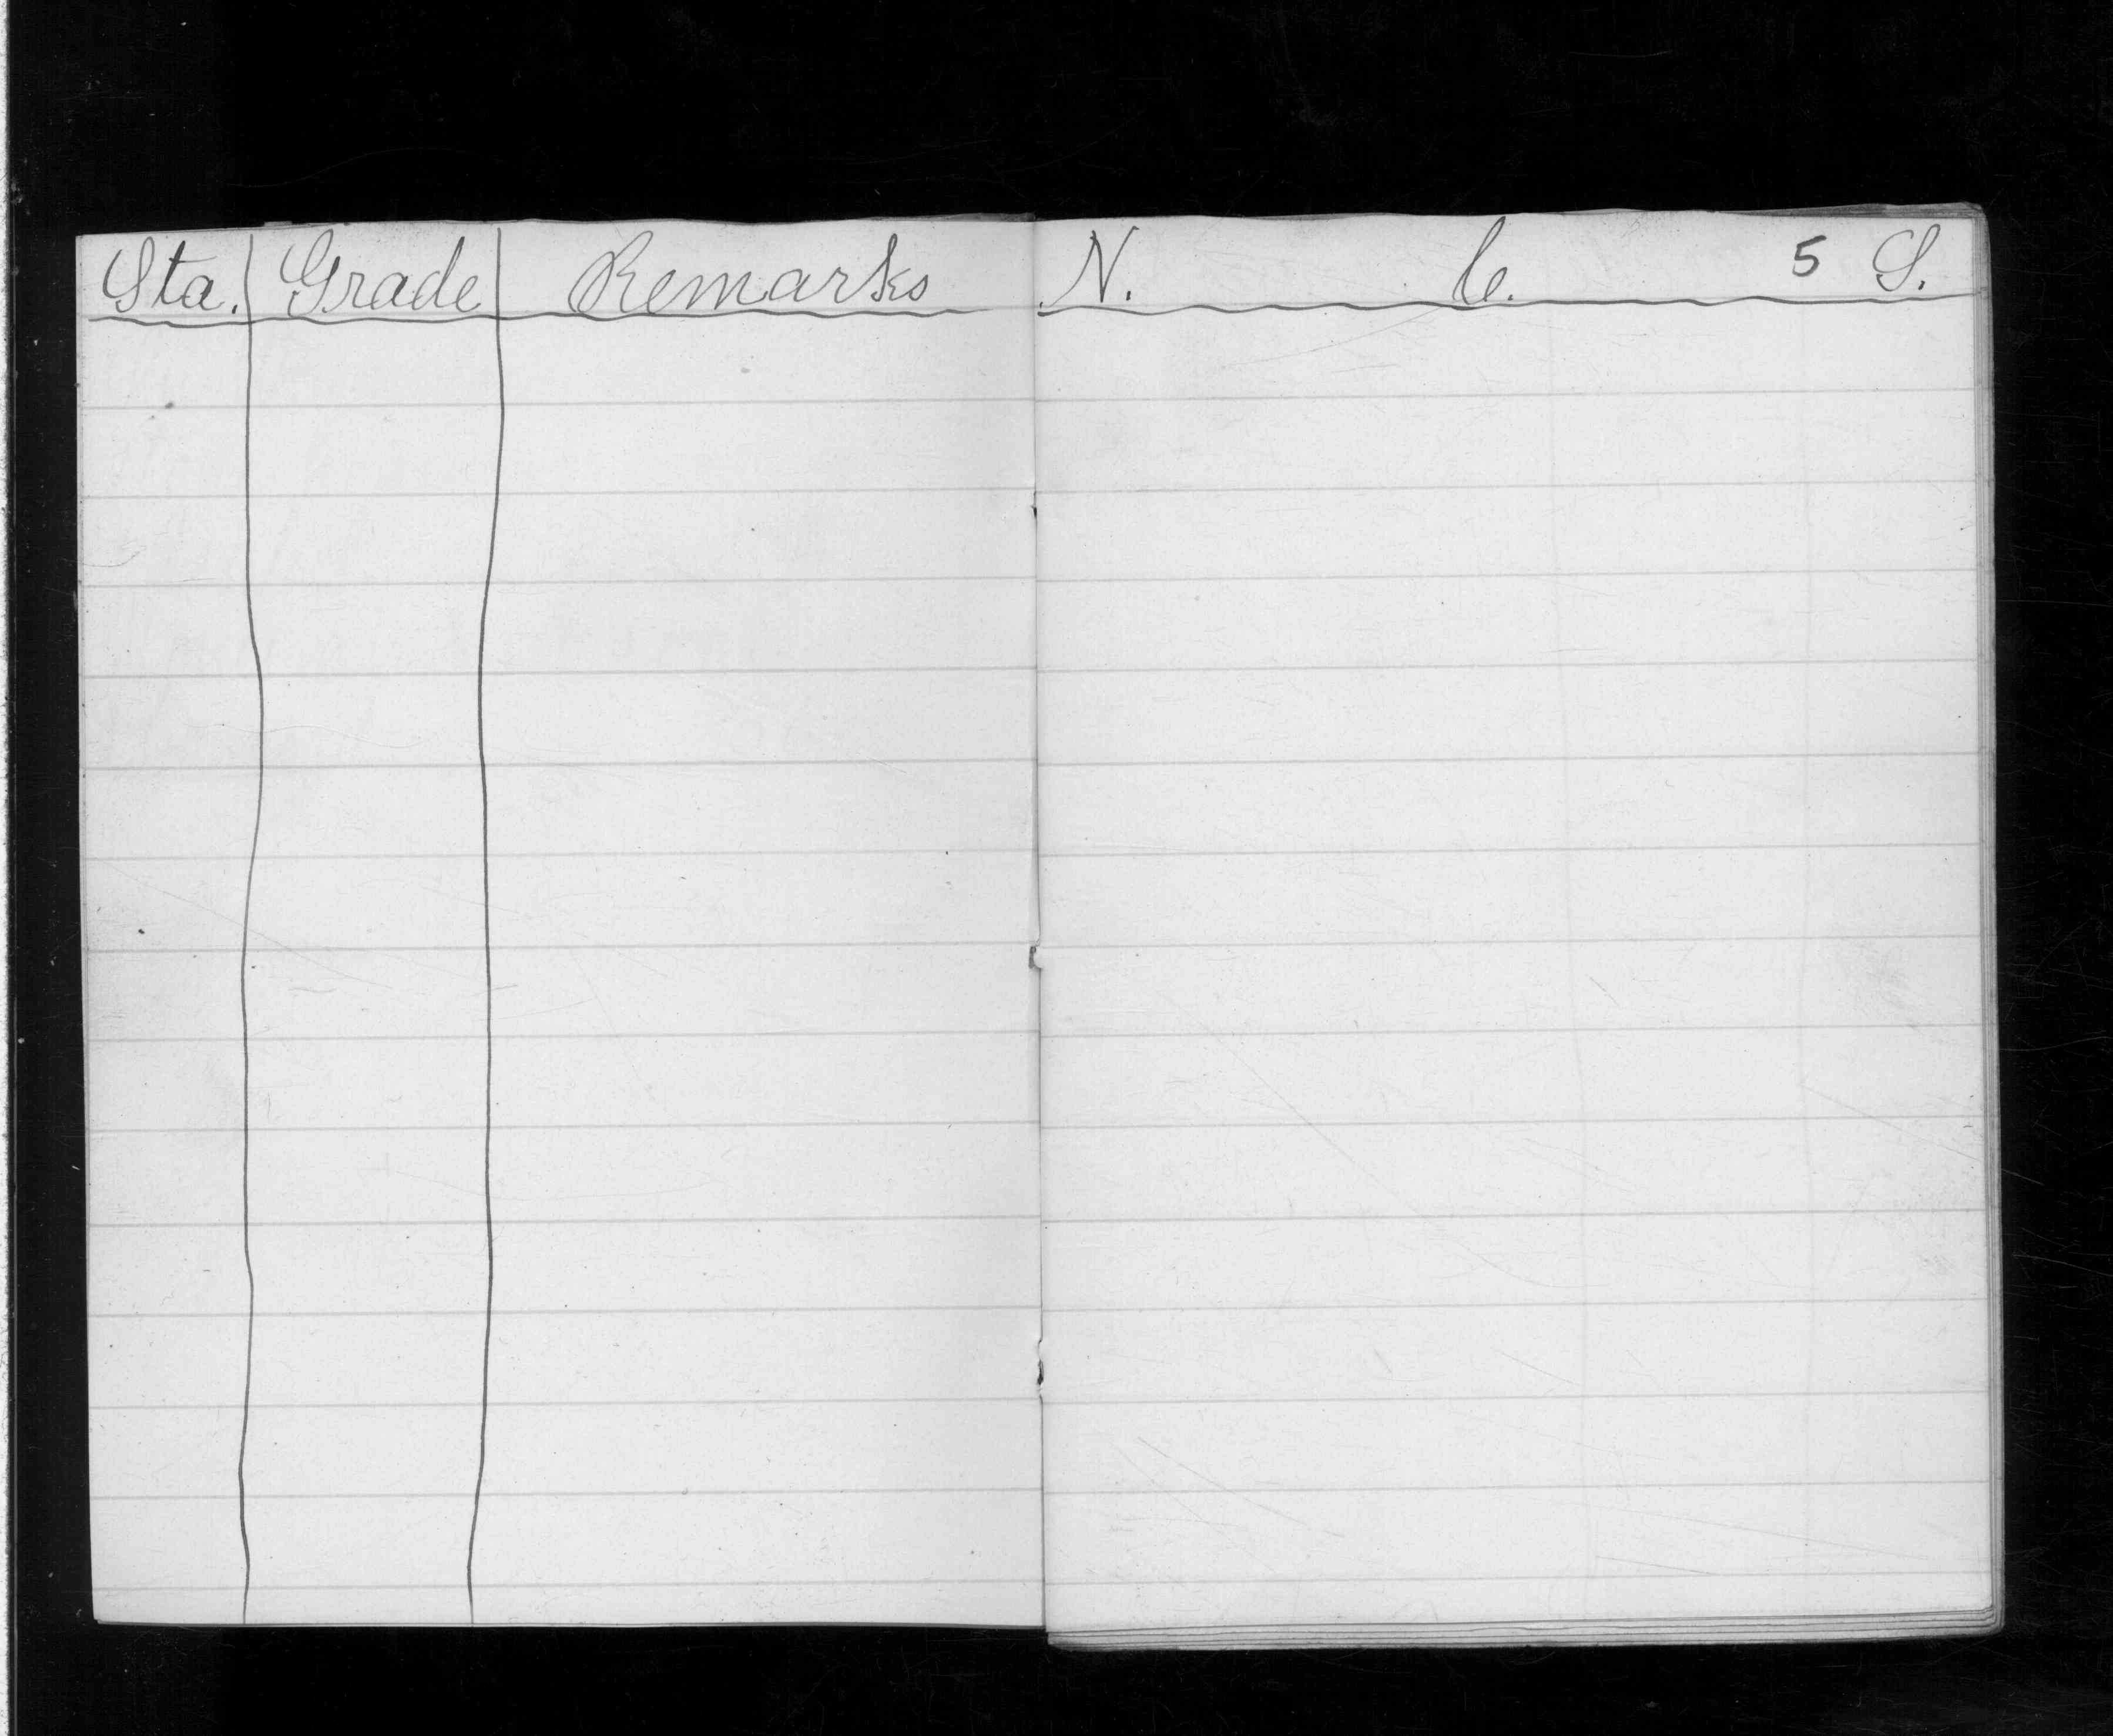 Sta. Grade Remarks
N. C. 5 S.